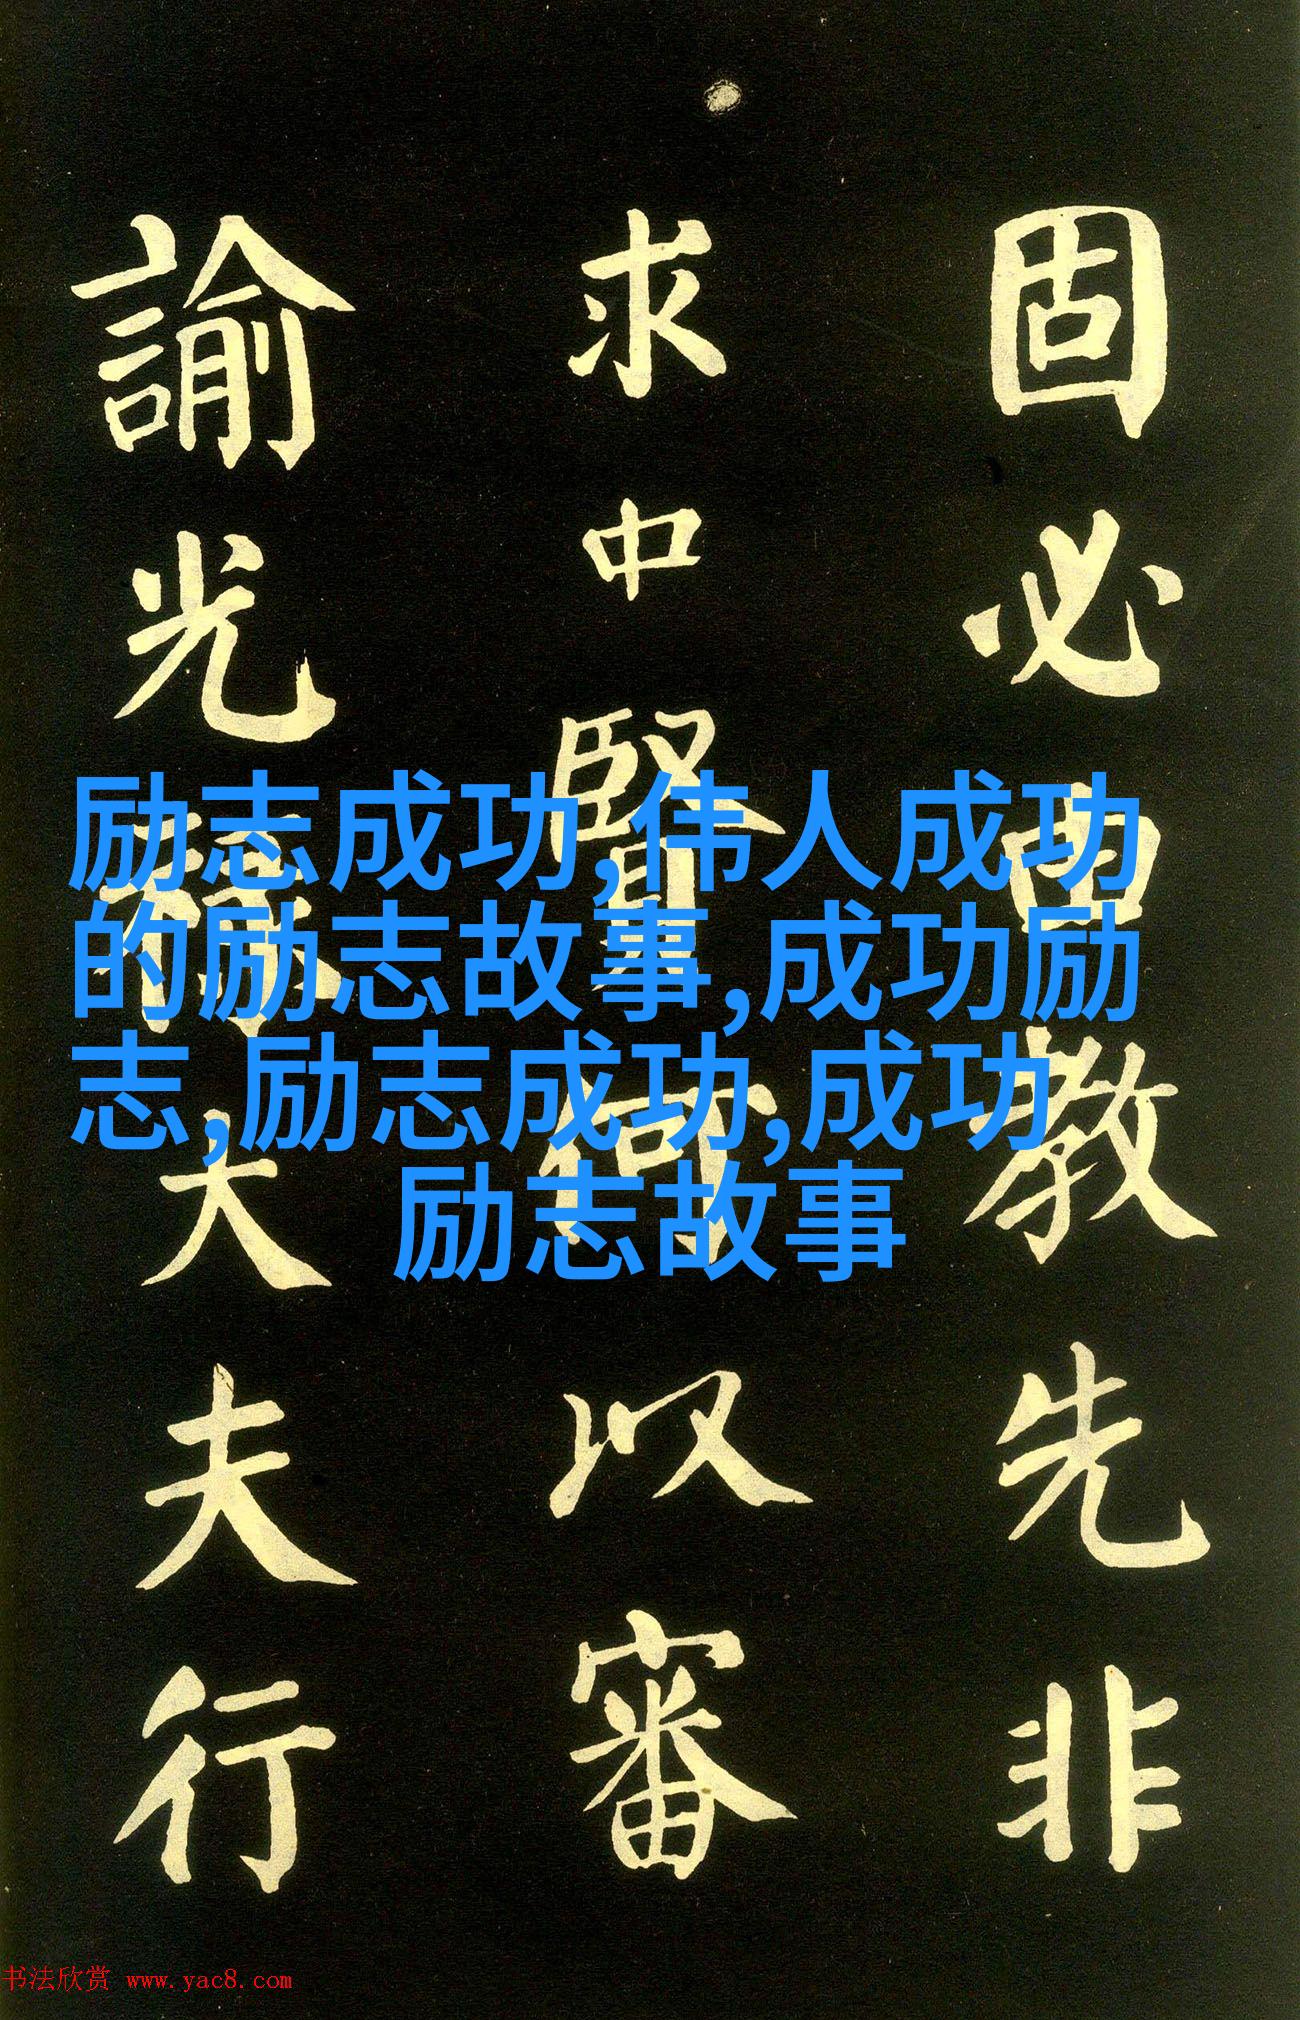 固必由教先非
求中賢何以審
諭光禄大夫行
励志成功,伟人成功
的励志故事,成功励
志,励志成功,成功
励志故事
书法欣赏 www.yac8.com